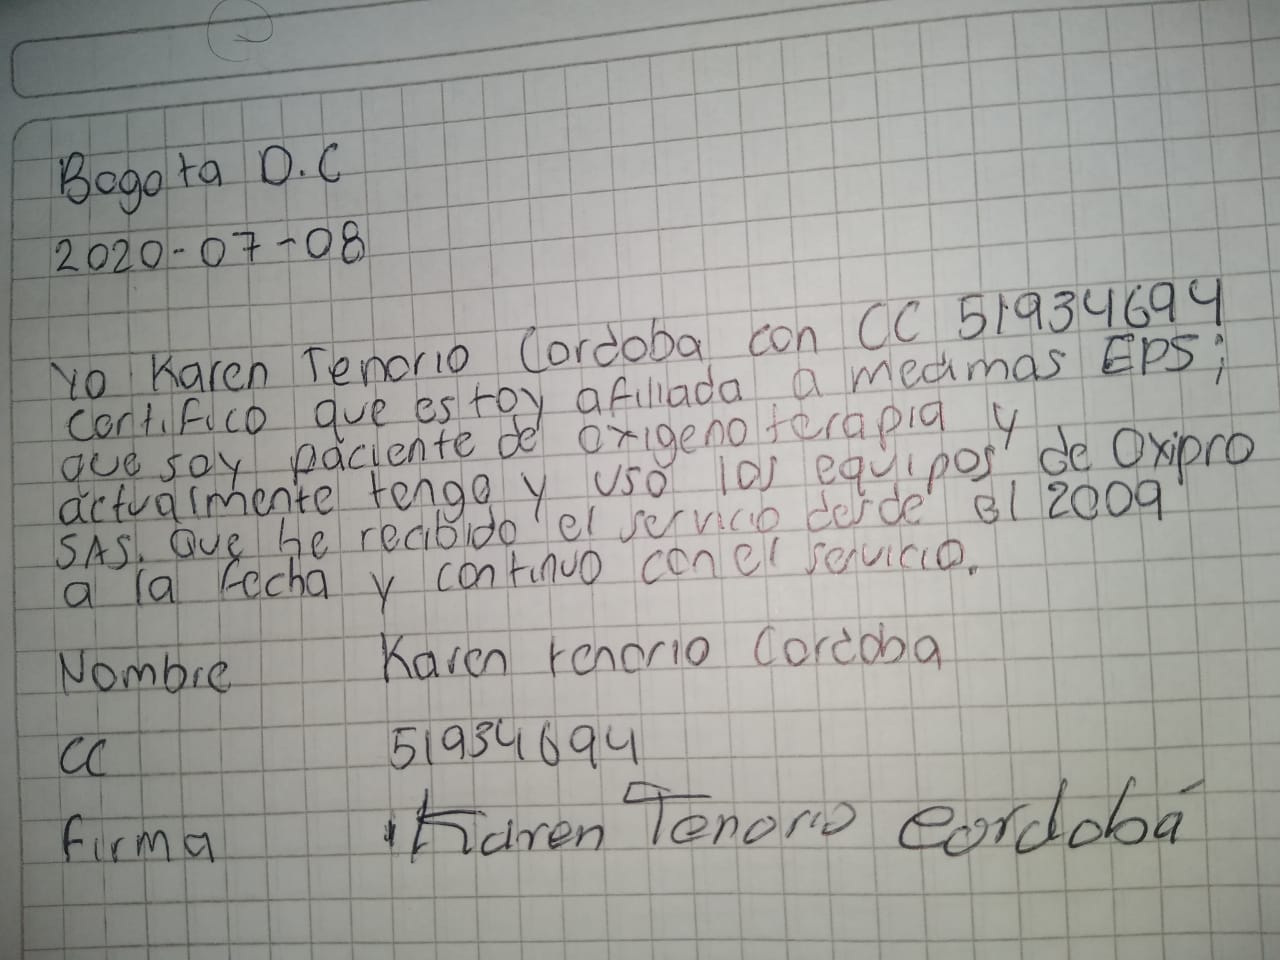 Bogota D.C
2020-07-08
Yo Karen Tenorio Cordoba con CC 51934694
certifico que estoy afiliada a medimas EPS;
que soy paciente de oxigeno terapia y
actualmente tengo y uso los equipos de Oxipro
SAS. Que he recibido el servicio desde el 2009
a la fecha y continuo con el servicio.
Nombre Karen tenorio Cordoba
CC 51934694
Firma Karen Tenorio Cordoba